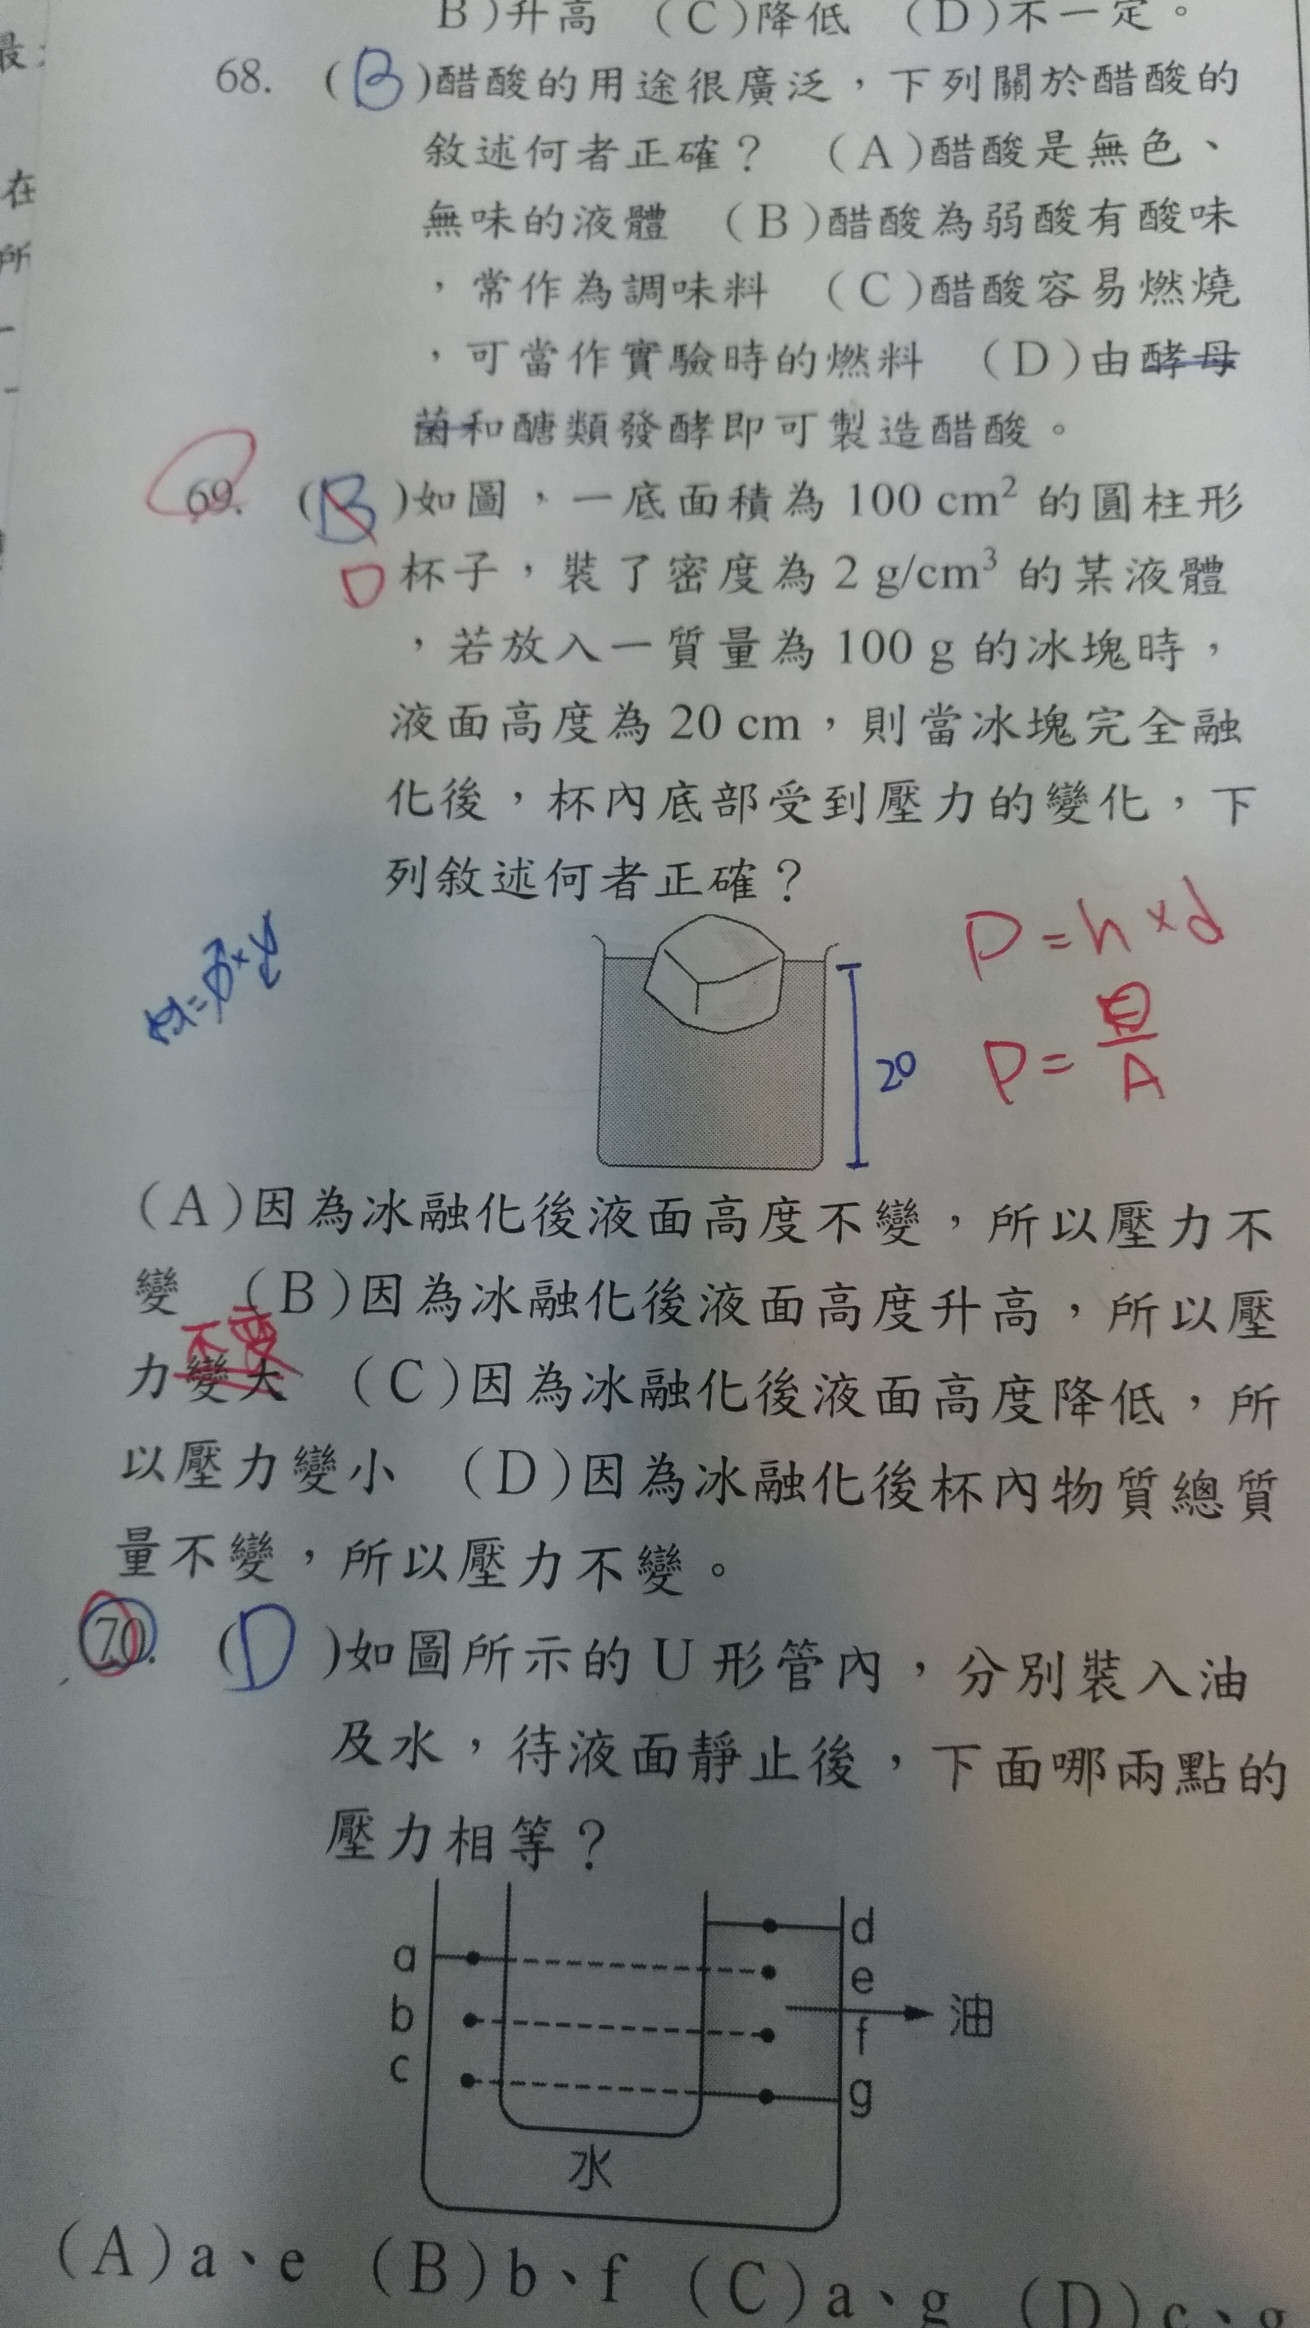 B)升高 (C)降低 (D)不一定。
68. (B)醋酸的用途很廣泛，下列關於醋酸的
敘述何者正確？ (A)醋酸是無色、
無味的液體 (B)醋酸為弱酸有酸味
，常作為調味料 (C)醋酸容易燃燒
，可當作實驗時的燃料 (D)由酵母
菌和醣類發酵即可製造醋酸。
在
所
69. (B)如圖，一底面積為 100 cm² 的圓柱形
D 杯子，裝了密度為 2 g/cm³ 的某液體
，若放入一質量為 100 g 的冰塊時，
液面高度為 20 cm，則當冰塊完全融
化後，杯內底部受到壓力的變化，下
列敘述何者正確？
P=h×d
P=
A
20
(A)因為冰融化後液面高度不變，所以壓力不
變 (B)因為冰融化後液面高度升高，所以壓
不變
力變大 (C)因為冰融化後液面高度降低，所
以壓力變小 (D)因為冰融化後杯內物質總質
量不變，所以壓力不變。
70. (D)如圖所示的 U 形管內，分別裝入油
及水，待液面靜止後，下面哪兩點的
壓力相等？
d
a
e
b
油
f
c
g
水
(A)a、e (B)b、f (C)a、g (D)c、g